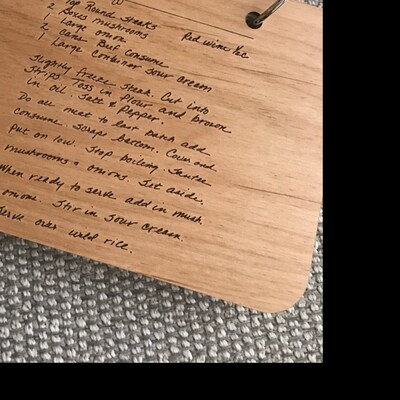 Top Round Steaks
2 Boxes mushrooms Red wine
1 Large onion
2 cans Bef Consume
1 Large Container Sour Cream
Slightly freeze steak. Cut into
Strips Toss in flour and brown
in oil. Salt & Pepper.
Do all meat to last batch add
Consume scrape bottom. Cover and
put on low. Stop boiling. Sautee
mushrooms & onions Set aside.
When ready to serve add in mush.
onions. Stir in Sour Cream.
Serve over wild rice.